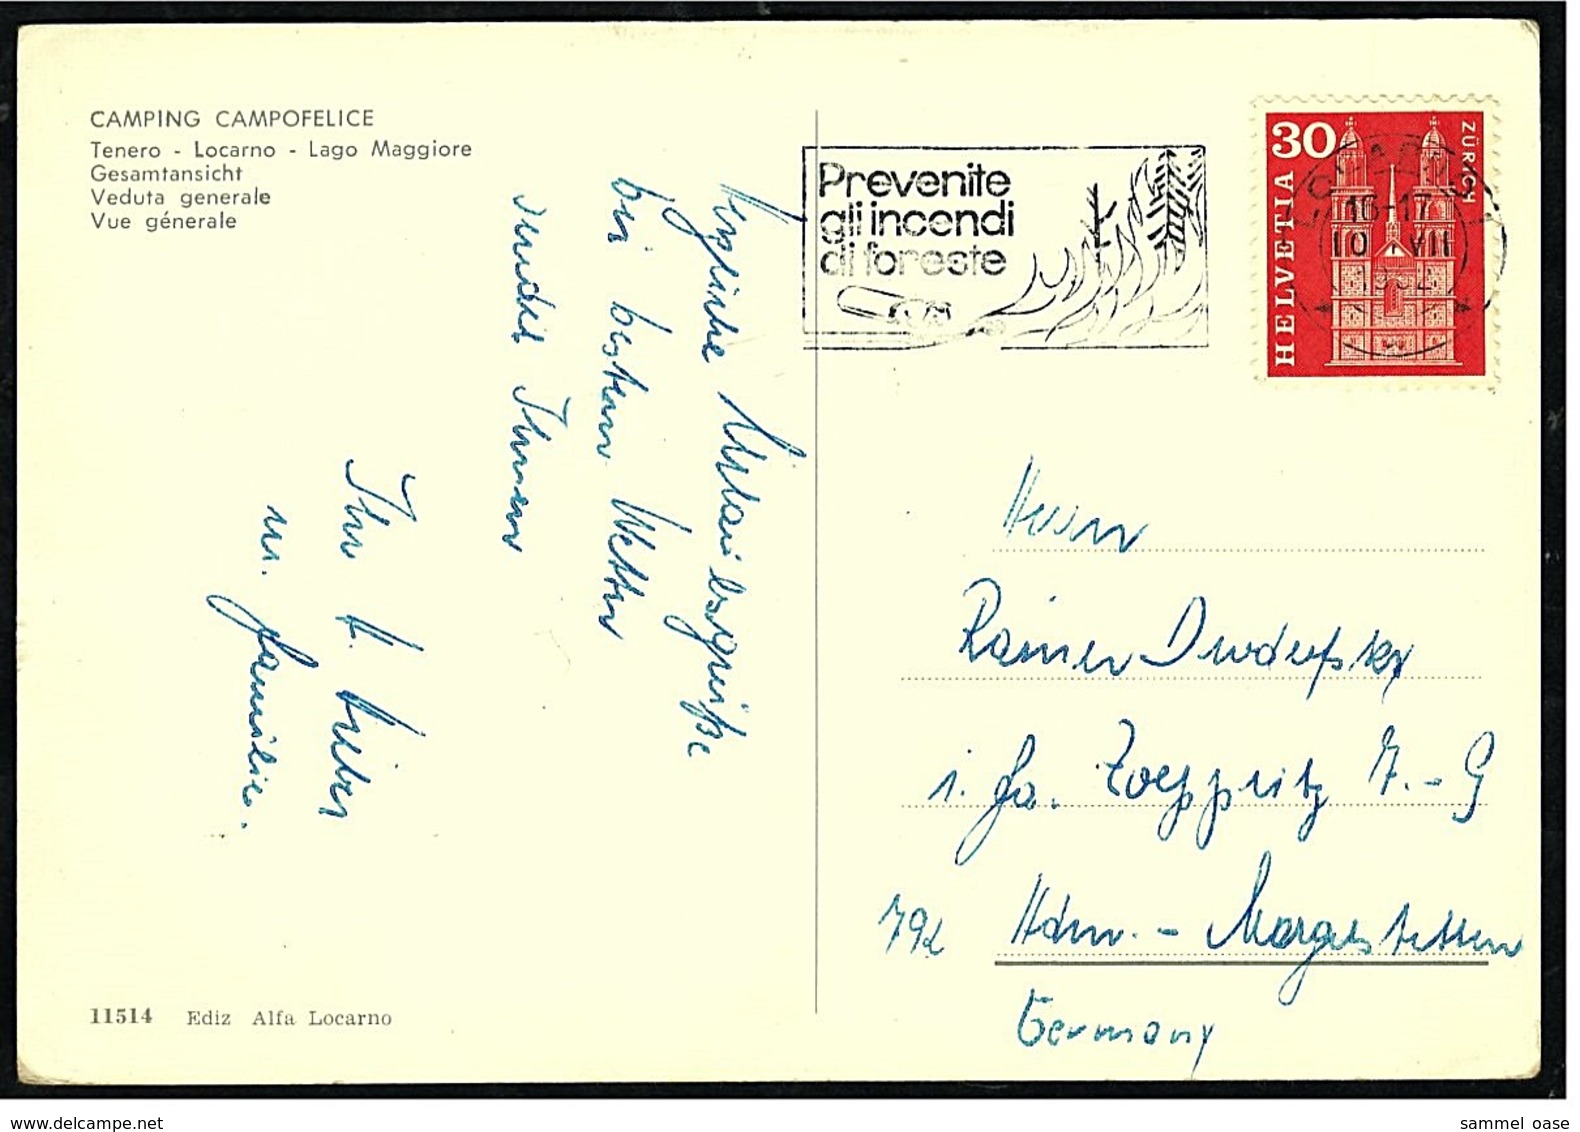 CAMPING CAMPOFELICE
Tenero - Locarno - Lago Maggiore
Gesamtansicht
Veduta generale
Vue génerale
Prevenite
gli incendi
di foreste
30
ZÜRICH
HELVETIA
LOCARNO 1
16-17
10 VII
Herzliche Urlaubsgrüße
bei bestem Wetter
sendet Ihnen
Ihr
u. Familie.
Herrn
Rainer
i. Fa. Zoeppritz A.-G
792 Hdm. - Mergelstetten
Germany
11514 Ediz Alfa Locarno
www.delcampe.net
sammel_oase